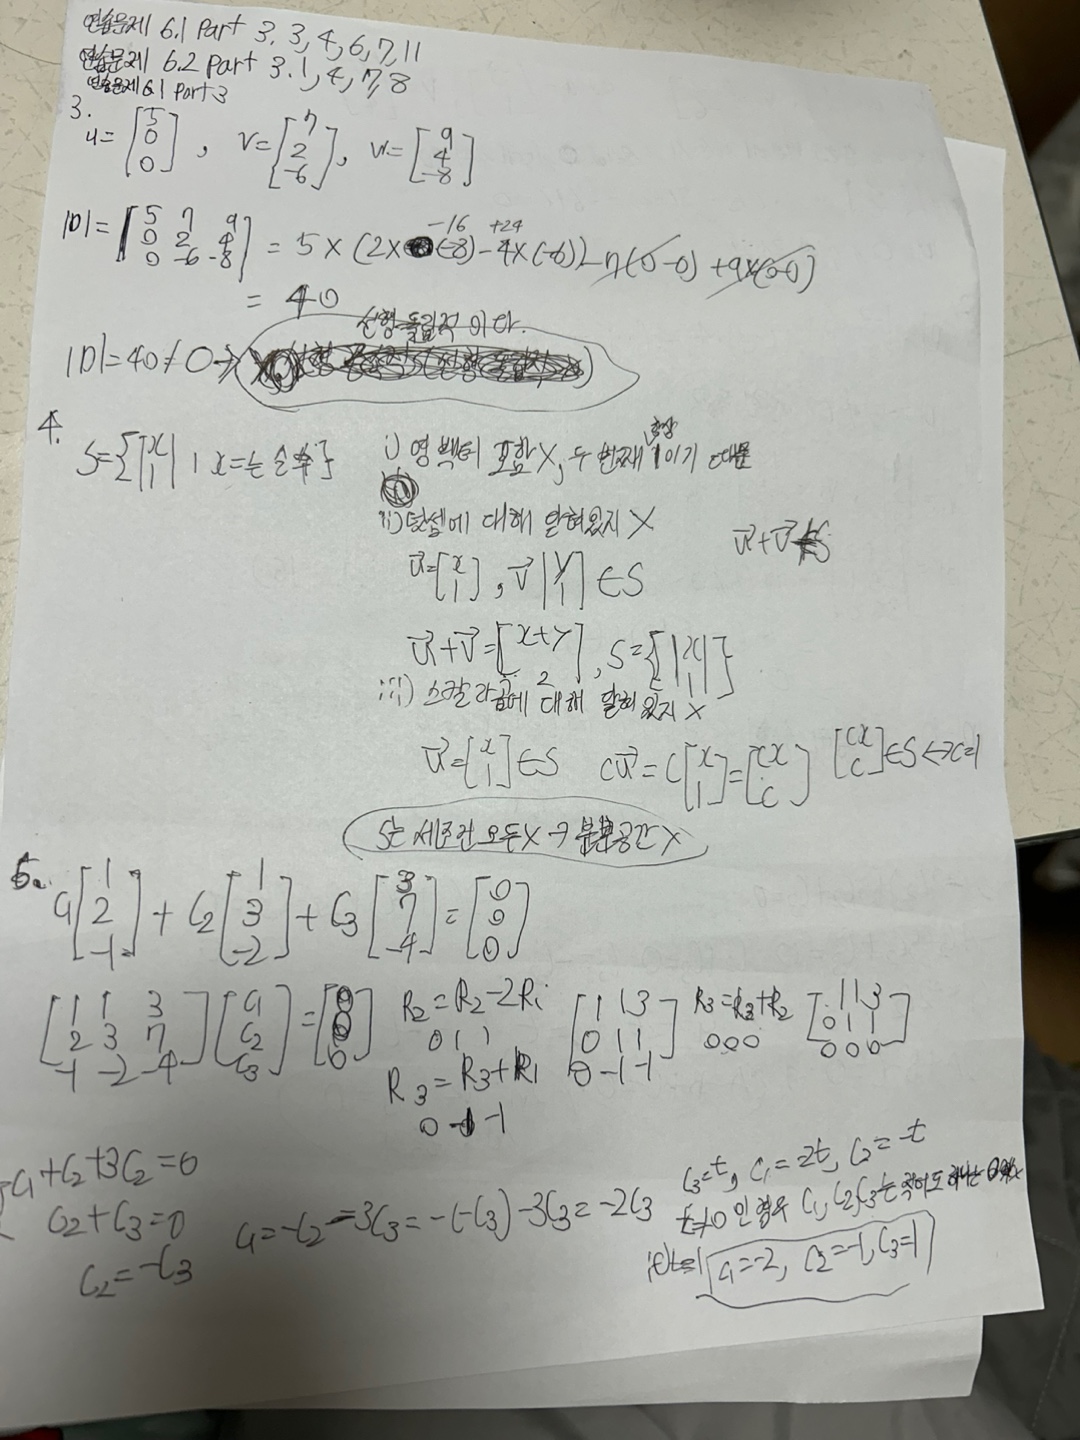 연습문제 6.1 Part 3. 3, 4, 6, 7, 11
연습문제 6.2 part 3. 1, 4, 7, 8
연습문제 6.1 Part 3
3.
u = [5 0 0], v = [7 2 -6], w = [9 4 -8]
-16 +24
|D| = [5 7 9 / 0 2 4 / 0 -6 -8] = 5 × (2×(-8) - 4×(-6)) - 7(0-0) + 9×(0-0)
= 40
선형 독립적 이다.
|D| = 40 ≠ 0 →
4.
S = {[x 1] | x = 는 실수}
i) 영 벡터 포함 X, 두 번째 항상 1이기 때문
ii) 덧셈에 대해 닫혀있지 X
u = [x 1], v [y 1] ∈ S
u + v
u + v = [x+y 2], S = {[x 1]}
iii) 스칼라곱에 대해 닫혀 있지 X
u = [x 1] ∈ S cu = c[x 1] = [cx c] [cx c] ∈ S ↔ c=1
S는 세조건 모두 X → 부분공간 X
6.
C1 [1 2 -1] + C2 [1 3 -2] + C3 [3 7 -4] = [0 0 0]
[1 1 3 / 2 3 7 / -1 -2 -4] [C1 C2 C3] = [0 0 0]
R2 = R2 - 2R1
0 1 1
R3 = R3 + R1
0 -1 -1
[1 1 3 / 0 1 1 / 0 -1 -1]
R3 = R3 + R2
0 0 0
[1 1 3 / 0 1 1 / 0 0 0]
C1 + C2 + 3C2 = 0
C2 + C3 = 0
C2 = -C3
C1 = -C2 - 3C3 = -(-C3) - 3C3 = -2C3
C3 = t, C1 = 2t, C2 = -t
t ≠ 0 인 경우 C1, C2, C3는 적어도 하나는 0
t=1 C1 = -2, C2 = -1, C3 = 1